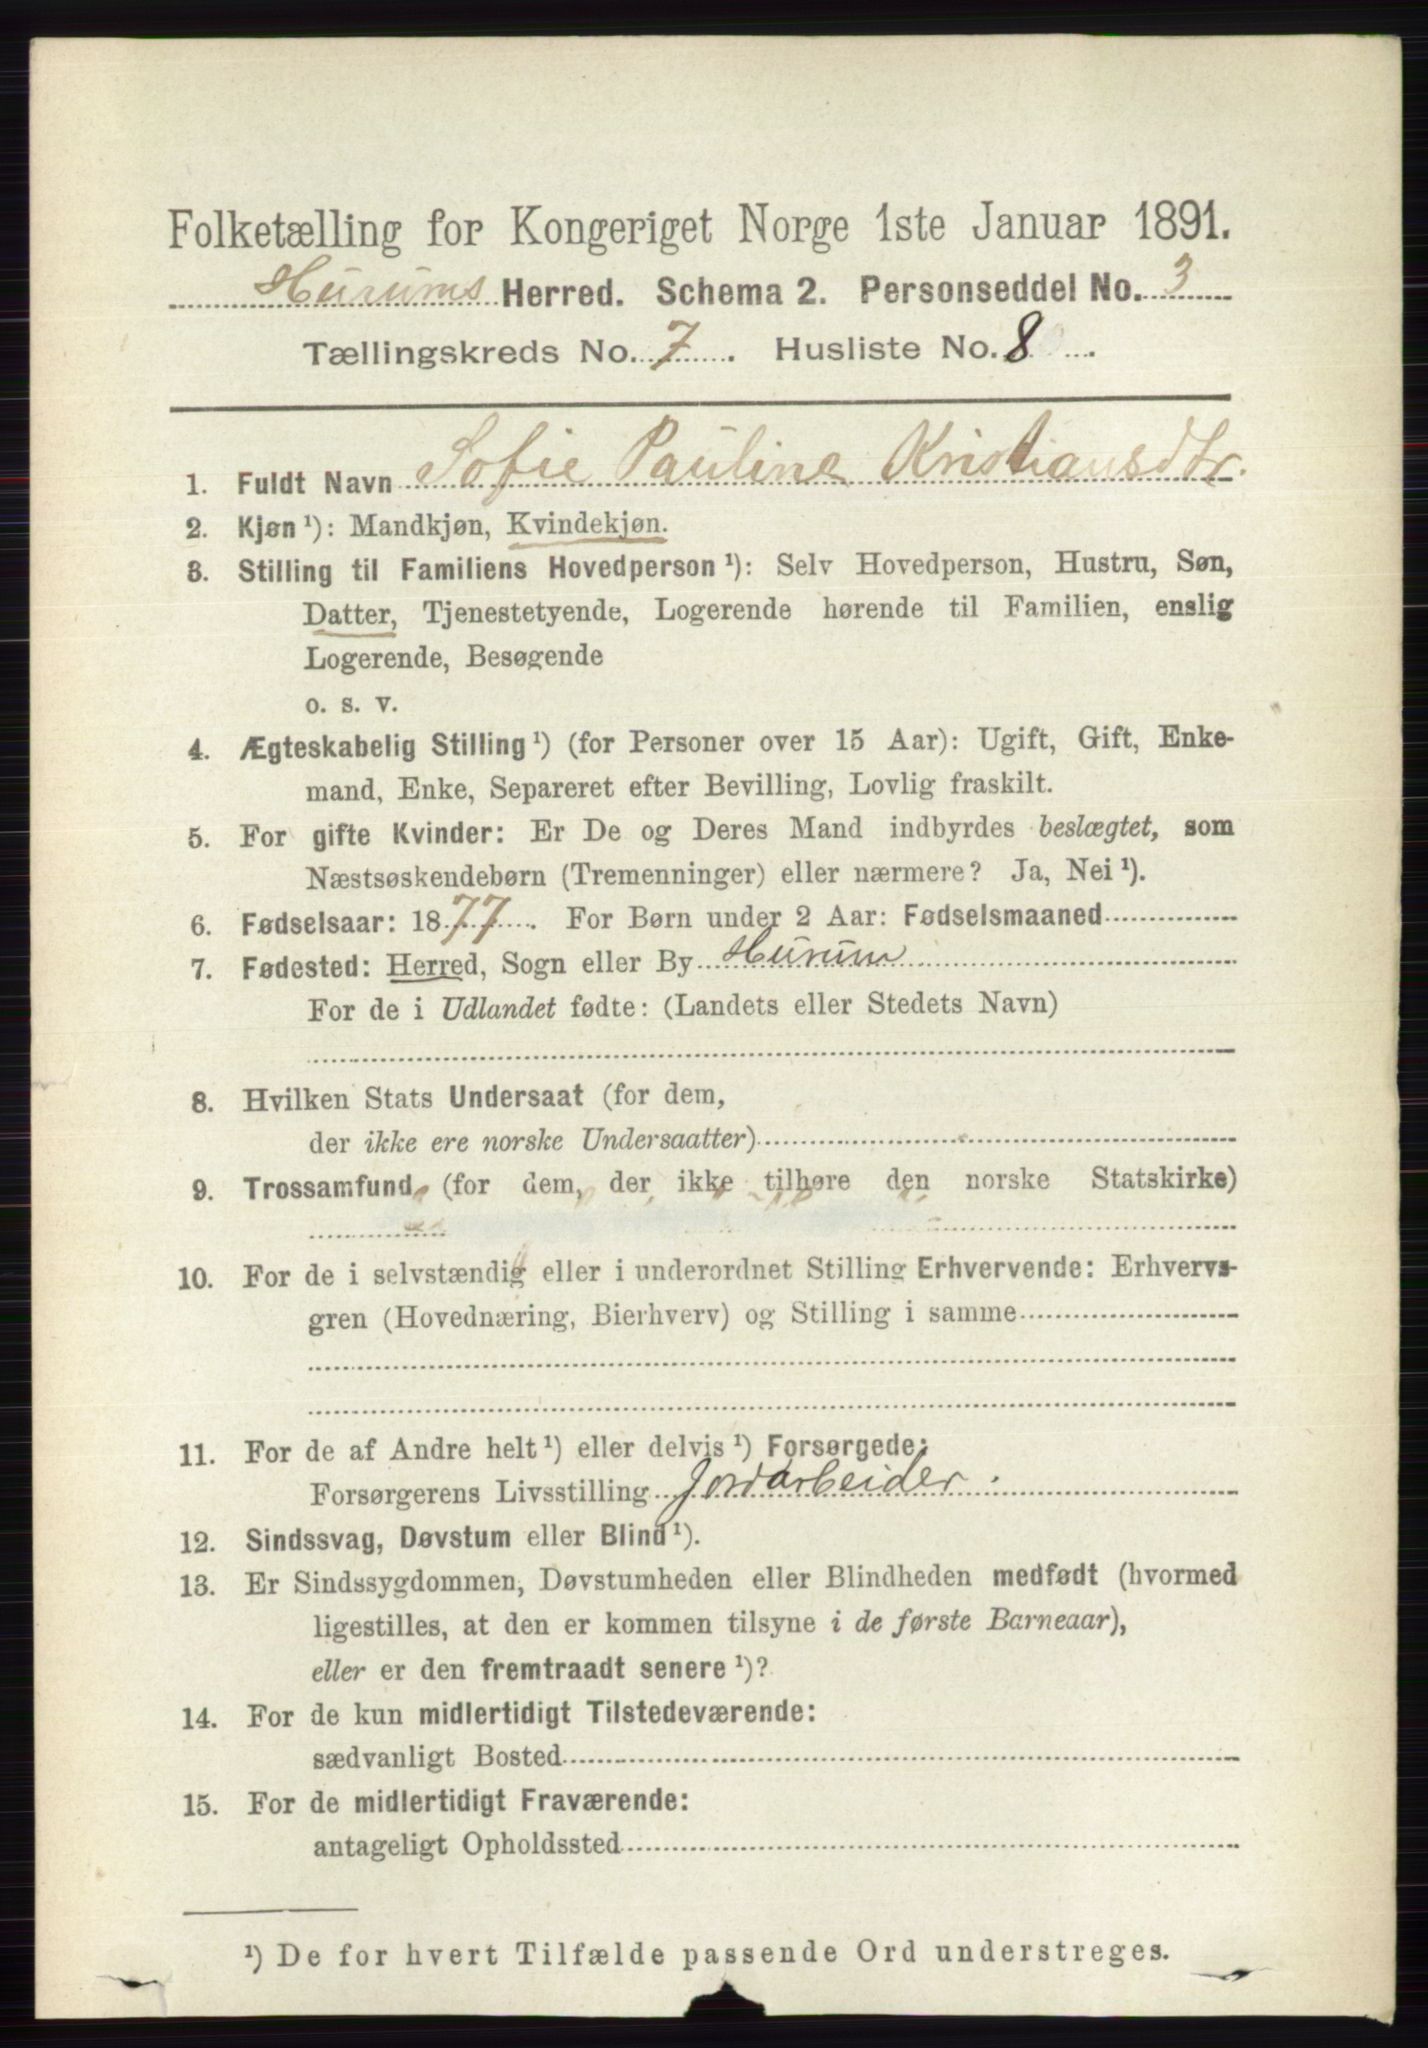 Folketælling for Kongeriget Norge 1ste Januar 1891.
Hurums Herred. Schema 2. Personseddel No. 3
Tællingskreds No. 7. Husliste No. 8.
1. Fuldt Navn Sofie Pauline Kristiansdtr.
2. Kjøn ¹): Mandkjøn, Kvindekjøn.
3. Stilling til Familiens Hovedperson ¹): Selv Hovedperson, Hustru, Søn,
Datter, Tjenestetyende, Logerende hørende til Familien, enslig
Logerende, Besøgende
o. s. v.
4. Ægteskabelig Stilling ¹) (for Personer over 15 Aar): Ugift, Gift, Enke-
mand, Enke, Separeret efter Bevilling, Lovlig fraskilt.
5. For gifte Kvinder: Er De og Deres Mand indbyrdes beslægtet, som
Næstsøskendebørn (Tremenninger) eller nærmere? Ja, Nei ¹).
6. Fødselsaar: 1877. For Børn under 2 Aar: Fødselsmaaned
7. Fødested: Herred, Sogn eller By Hurum
For de i Udlandet fødte: (Landets eller Stedets Navn)
8. Hvilken Stats Undersaat (for dem,
der ikke ere norske Undersaatter)
9. Trossamfund (for dem, der ikke tilhøre den norske Statskirke)
10. For de i selvstændig eller i underordnet Stilling Erhvervende: Erhvervs-
gren (Hovednæring, Bierhverv) og Stilling i samme
11. For de af Andre helt ¹) eller delvis ¹) Forsørgede:
Forsørgerens Livsstilling Jordarbeider.
12. Sindssvag, Døvstum eller Blind ¹).
13. Er Sindssygdommen, Døvstumheden eller Blindheden medfødt (hvormed
ligestilles, at den er kommen tilsyne i de første Barneaar),
eller er den fremtraadt senere ¹)?
14. For de kun midlertidigt Tilstedeværende:
sædvanligt Bosted
15. For de midlertidigt Fraværende:
antageligt Opholdssted
¹) De for hvert Tilfælde passende Ord understreges.